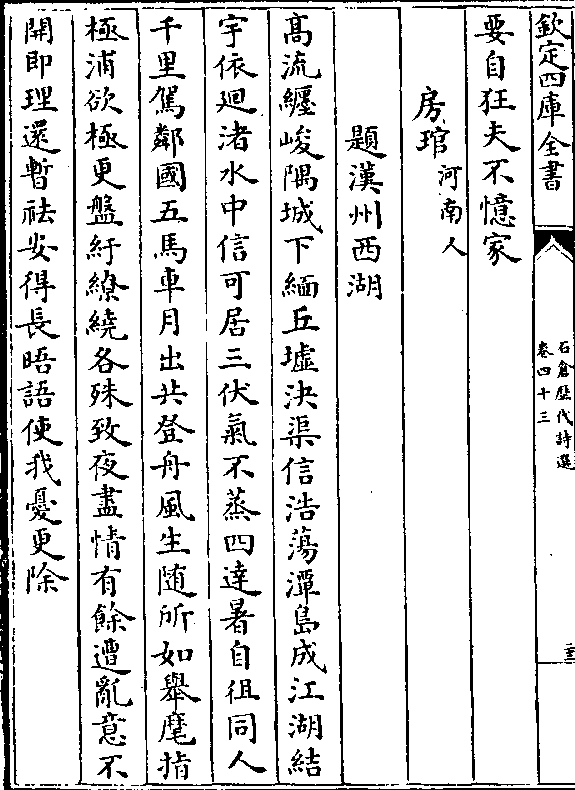 欽定四庫全書
石倉歷代詩選
卷四十三
要自狂夫不憶家
房琯河南人
題漢州西湖
高流纒峻隅城下緬丘墟決渠信浩蕩潭島成江湖結
宇依廻渚水中信可居三伏氣不蒸四達暑自徂同人
千里駕鄰國五馬車月出共登舟風生随所如舉麾指
極浦欲極更盤紆繚繞各殊致夜盡情有餘遭亂意不
開即理還暫祛安得長晤語使我憂更除